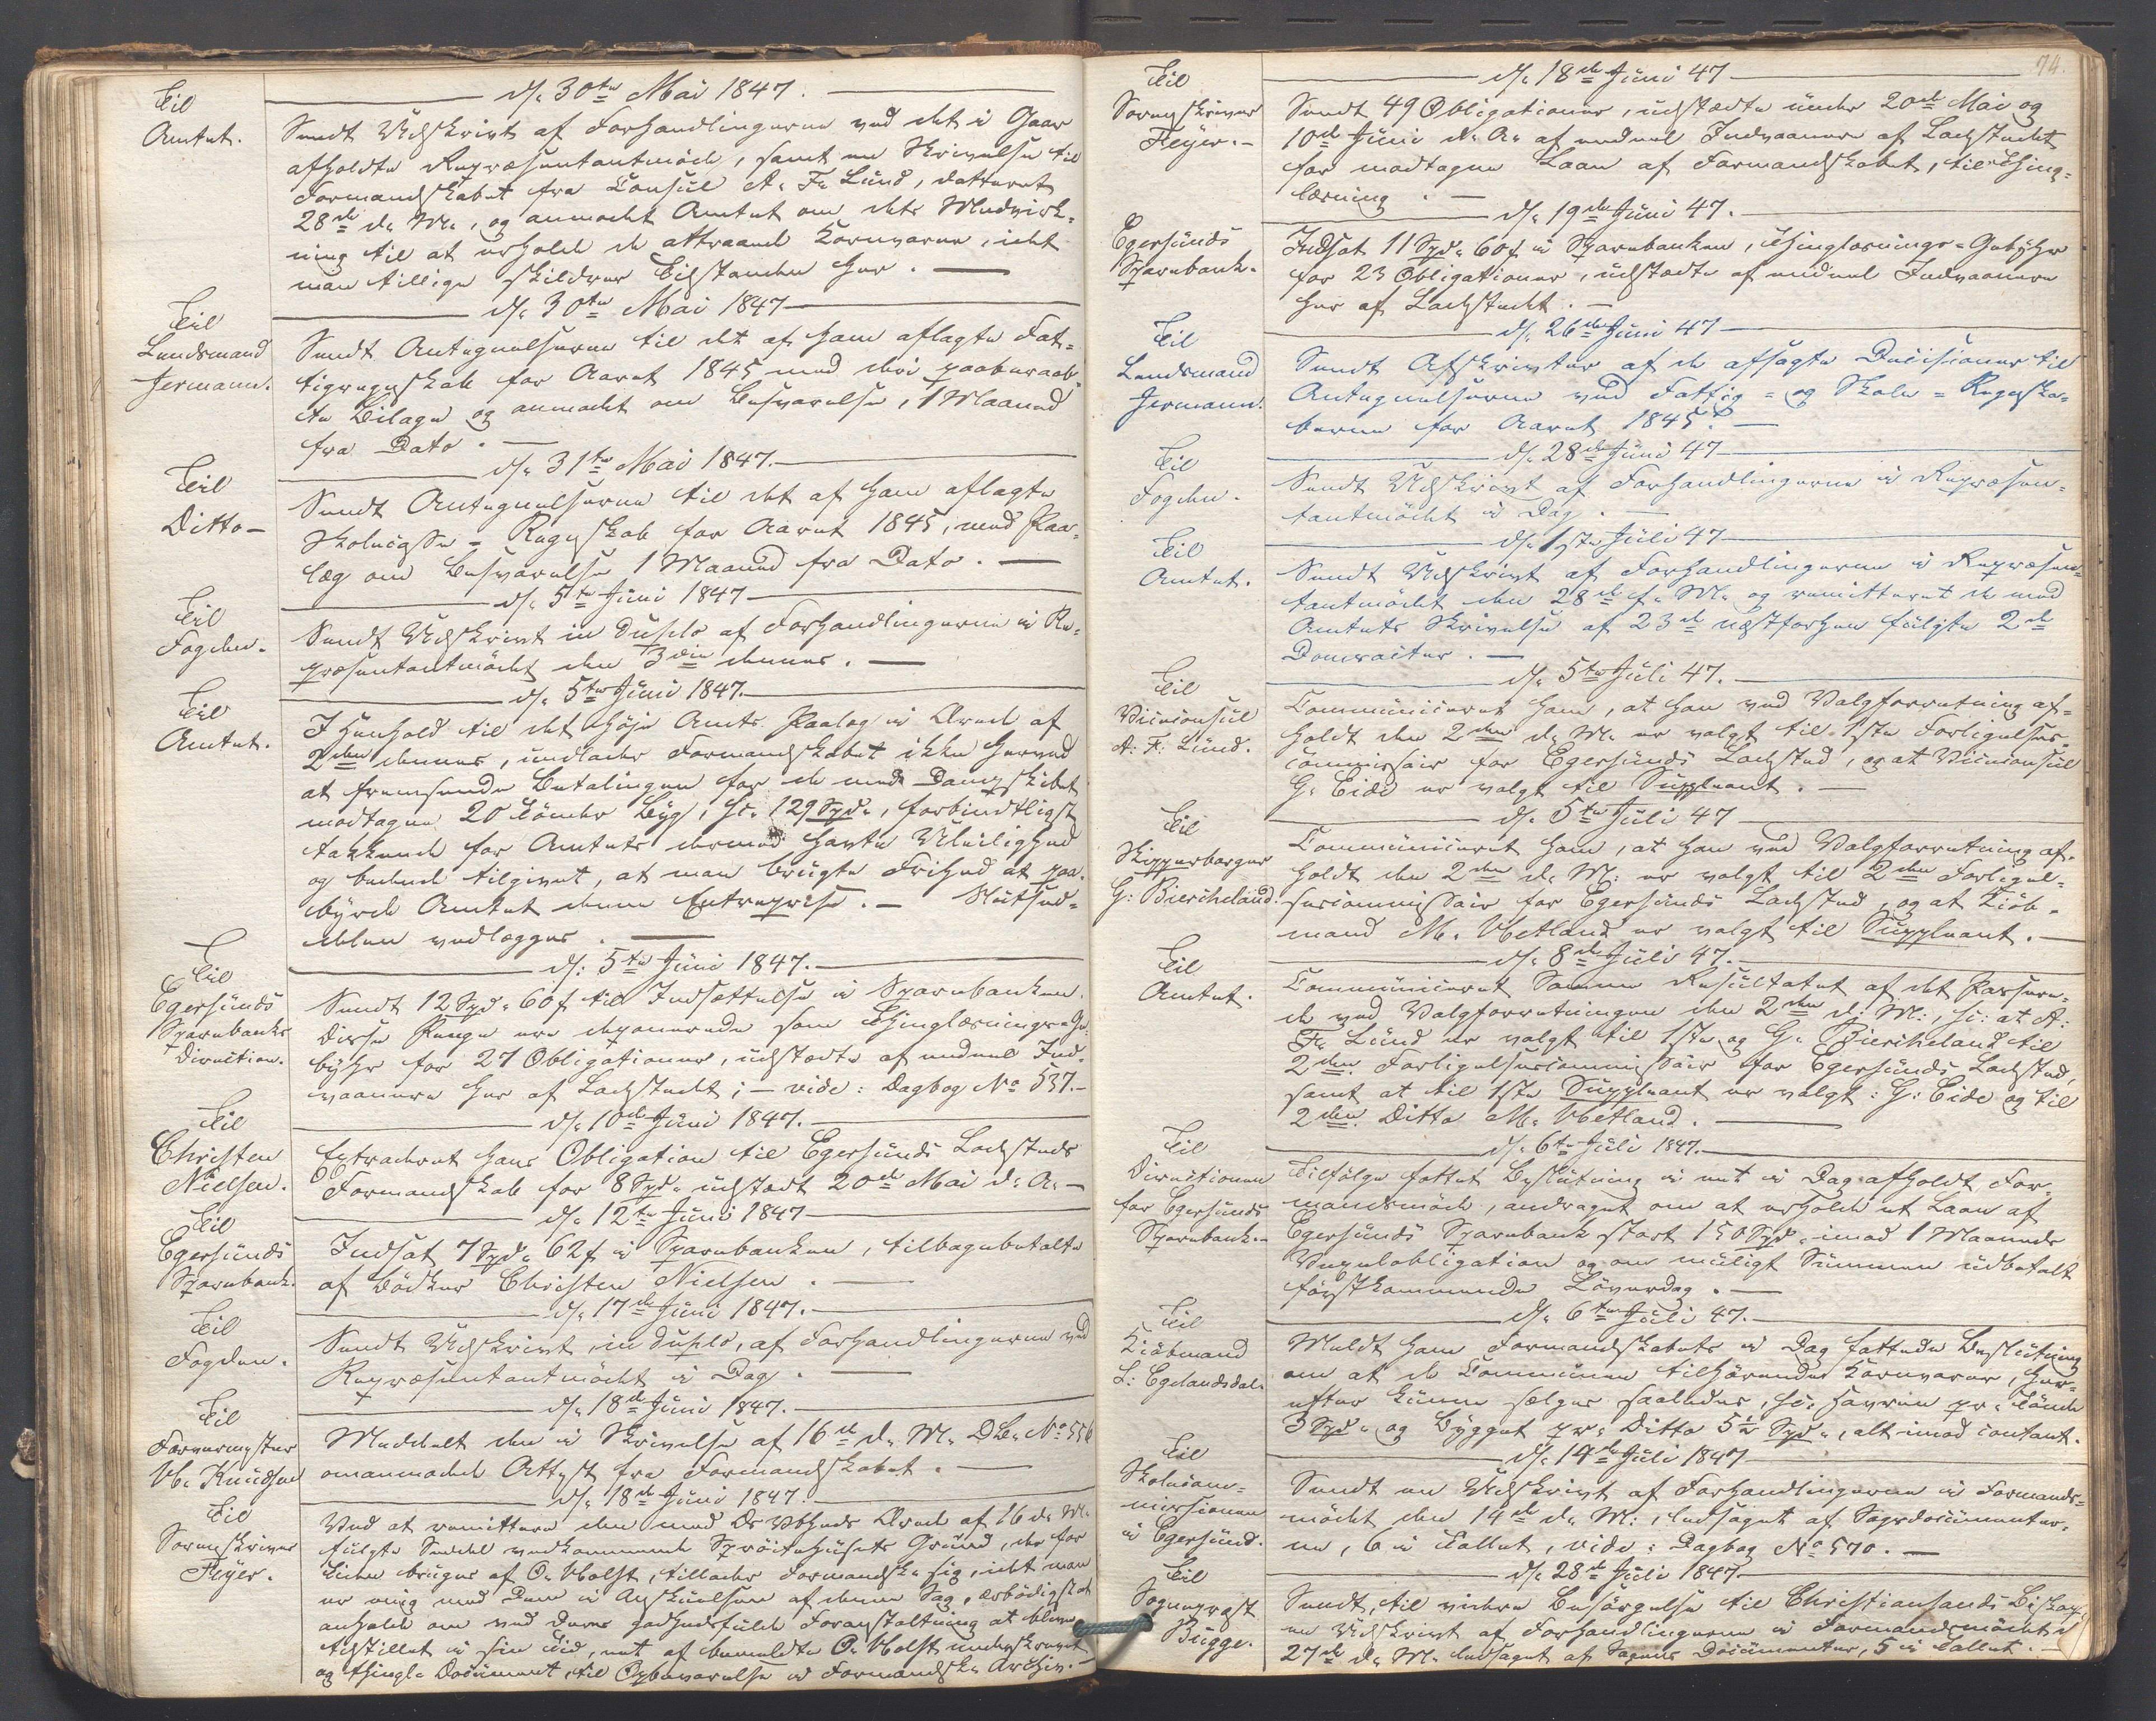 Til
Amtet.
d. 30te Mai 1847.
Sendt Udskrivt af Forhandlingerne ved det i Gaar
afholdte Repræsentantmöde, samt en Skrivelse til
Formandskabet fra Consul A. F. Lund, datteret
28de d. M., og anmodet Amtet om dets Medvirk-
ning til at erholde de attraaede Kornvarer, idet
man tillige skildrer Tilstanden her. —
Til
Lendsmand
Jermann.
d. 30te Mai 1847
Sendt Antegnelserne til det af ham aflagte Fat-
tigregnskab for Aaret 1845 med deri paaberaab-
te Bilage og anmodet om Besvarelse, 1 Maaned
fra Dato. —
Til
Ditto —
d. 31te Mai 1847.
Sendt Antegnelserne til det af ham aflagte
Skolecasse-Regnskab for Aaret 1845, med Paa-
læg om Besvarelse 1 Maaned fra Dato. —
Til
Fogden.
d. 5te Juni 1847
Sendt Udskrivt in duplo af Forhandlingerne i Re-
præsentantmödet den 3die dennes. —
Til
Amtet.
d. 5te Juni 1847.
I Henhold til det Höje Amts Paalæg i Brev af
2den dennes, undlader Formandskabet ikke herved
at fremsende Betalingen for de med Dampskibet
modtagne 20 Tönder Byg, sc. 129 Spd., forbindtligst
takkende for Amtets dermed havte Uleilighed
og bedende tilgivet, at man brugte Frihed at paa-
byrde Amtet denne Entreprise. —
vedlægges. —
Til
Egersunds
Sparebanks
Direction.
d. 5te Juni 1847.
Sendt 12 Spd. 60 ſ til Indsættelse i Sparebanken.
Disse Penge ere deponerede som Thinglæsnings-Ge-
byhr for 27 Obligationer, udstædte af endeel Ind-
vaanere her af Ladstedet; — vide: Dagbog No 537. —
Til
Christen
Nielsen.
d. 10de Juni 1847.
Extraderet hans Obligation til Egersunds Ladsteds
Formandskab for 8 Spd. udstædt 20de Mai d. A. —
Til
Egersunds
Sparebank.
d. 12te Juni 1847
Indsat 7 Spd. 62 ſ i Sparebanken, tilbagebetalte
af Bödker Christen Nielsen. —
Til
Fogden.
d. 17de Juni 1847.
Sendt Udskrivt, in duplo, af Forhandlingerne ved
Repræsentantmödet i Dag. —
Til
Farvermester
Knudsen
d. 18de Juni 1847.
Meddeelt den i Skrivelse af 16de d. M. No 556
omanmodede Attest fra Formandskabet. —
Til
Sorenskriver
Feyer.
d. 18de Juni 1847.
Ved at remittere den med Brev af 16 d. M.
fulgte Seddel vedkommende Spröitehusets Grund, der for
Tiden bruges af O. Holst, tillader Formandsk. sig, idet man
er enig med Dem i Anskuelsen af denne Sag, ærbödigst at
anholde om ved Deres godhedsfulde Foranstaltning at blive
tilstillet i sin Tid, et af bemeldte O. Holst underskrevet
og thingl. Document, til Opbevarelse i Formandsk. Archiv. —
74.
Til
Sorenskriver
Feyer. —
d. 18de Juni 47
Sendt 49 Obligationer, udstædte under 20de Mai og
10de Juni d. A. af endeel Indvaanere af Ladstedet
for modtagne Laan af Formandskabet, til Thing-
læsning. —
Egersunds
Sparebank.
d. 19de Juni 47.
Indsat 11 Spd. 60 ſ i Sparebanken, Thinglæsnings-Gebyhr
for 23 Obligationer, udstædte af endeel Indvaanere
her af Ladstedet. —
Til
Lendsmand
Jermann.
d. 26de Juni 47
Sendt Afskrivter af de afsagte Decisioner til
Antegnelserne ved Fattig- og Skole-Regnska-
berne for Aaret 1845. —
Til
Fogden.
d. 28de Juni 47
Sendt Udskrivt af Forhandlingerne i Repræsen-
tantmödet i Dag. —
Til
Amtet.
d. 1ste Juli 47
Sendt Udskrivt af Forhandlingerne i Repræsen-
tantmödet den 28de f. M. og remitteret de med
Amtets Skrivelse af 23de næstforhen fulgte 2de
. —
Til
Viceconsul
A. F. Lund.
d. 5te Juli 47.
Communiceret ham, at han ved Valgforretning af-
holdt den 2den d. M. er valgt til 1ste Forligelses-
commissair for Egersunds Ladsted, og at Viceconsul
G. Eide er valgt til Suppleant. —
Til
Skipperborger
G: Bierchelaud.
d. 5te Juli 47
Communiceret ham, at han ved Valgforretning af-
holdt den 2den d. M. er valgt til 2den Forligel-
sescommissair for Egersunds Ladsted, og at Kiöb-
mand M. Hetland er valgt til Suppleant. —
Til
Amtet.
d. 8de Juli 47.
Communiceret Samme Resultatet af det Passere-
de ved Valgforretningen den 2den d. M., sc: at A:
F. Lund er valgt til 1ste og G. Biercheland til
2den Forligelsescommissair for Egersunds Ladsted,
samt at til 1ste Suppleant er valgt: G: Eide og til
2den Ditto M. Hetland. —
Til
Directionen
for Egersunds
Sparebank. —
d. 6te Juli 1847.
Tilfölge fattet Beslutning i et i Dag afholdt For-
mandsmöde, andraget om at erholde et Laan af
Egersunds Sparebank stort 150 Spd. imod 1 Maaneds
Vexelobligation og om muligt Summen udbetalt
förstkommende Löverdag. —
Til
Kiöbmand
L: Egelandsdal.
d. 6te Juli 47.
Meldt ham Formandskabets i Dag fattede Beslutning
om at de Communen tilhörende Kornvarer, her-
efter kunne sælges saaledes, sc: Havren pr. Tönde
3 Spd. og Bygget pr. Ditto 5½ Spd., alt imod contant.
Til
Skolecom-
missionen
i Egersund.
d. 14de Juli 1847
Sendt en Udskrivt af Forhandlingerne i Formands-
mödet den 14de d. M., ledsaget af Sagsdocumenter-
ne, 6 i Tallet, vide: Dagbog No 570. —
Til
Sogneprest
Bugge.
d. 28de Juli 1847
Sendt, til videre Besörgelse til Christiansands Biskop
en Udskrivt af Forhandlingerne i Formandsmödet d.
27de d. M. ledsaget af Sagens Documenter, 5 i Tallet. —